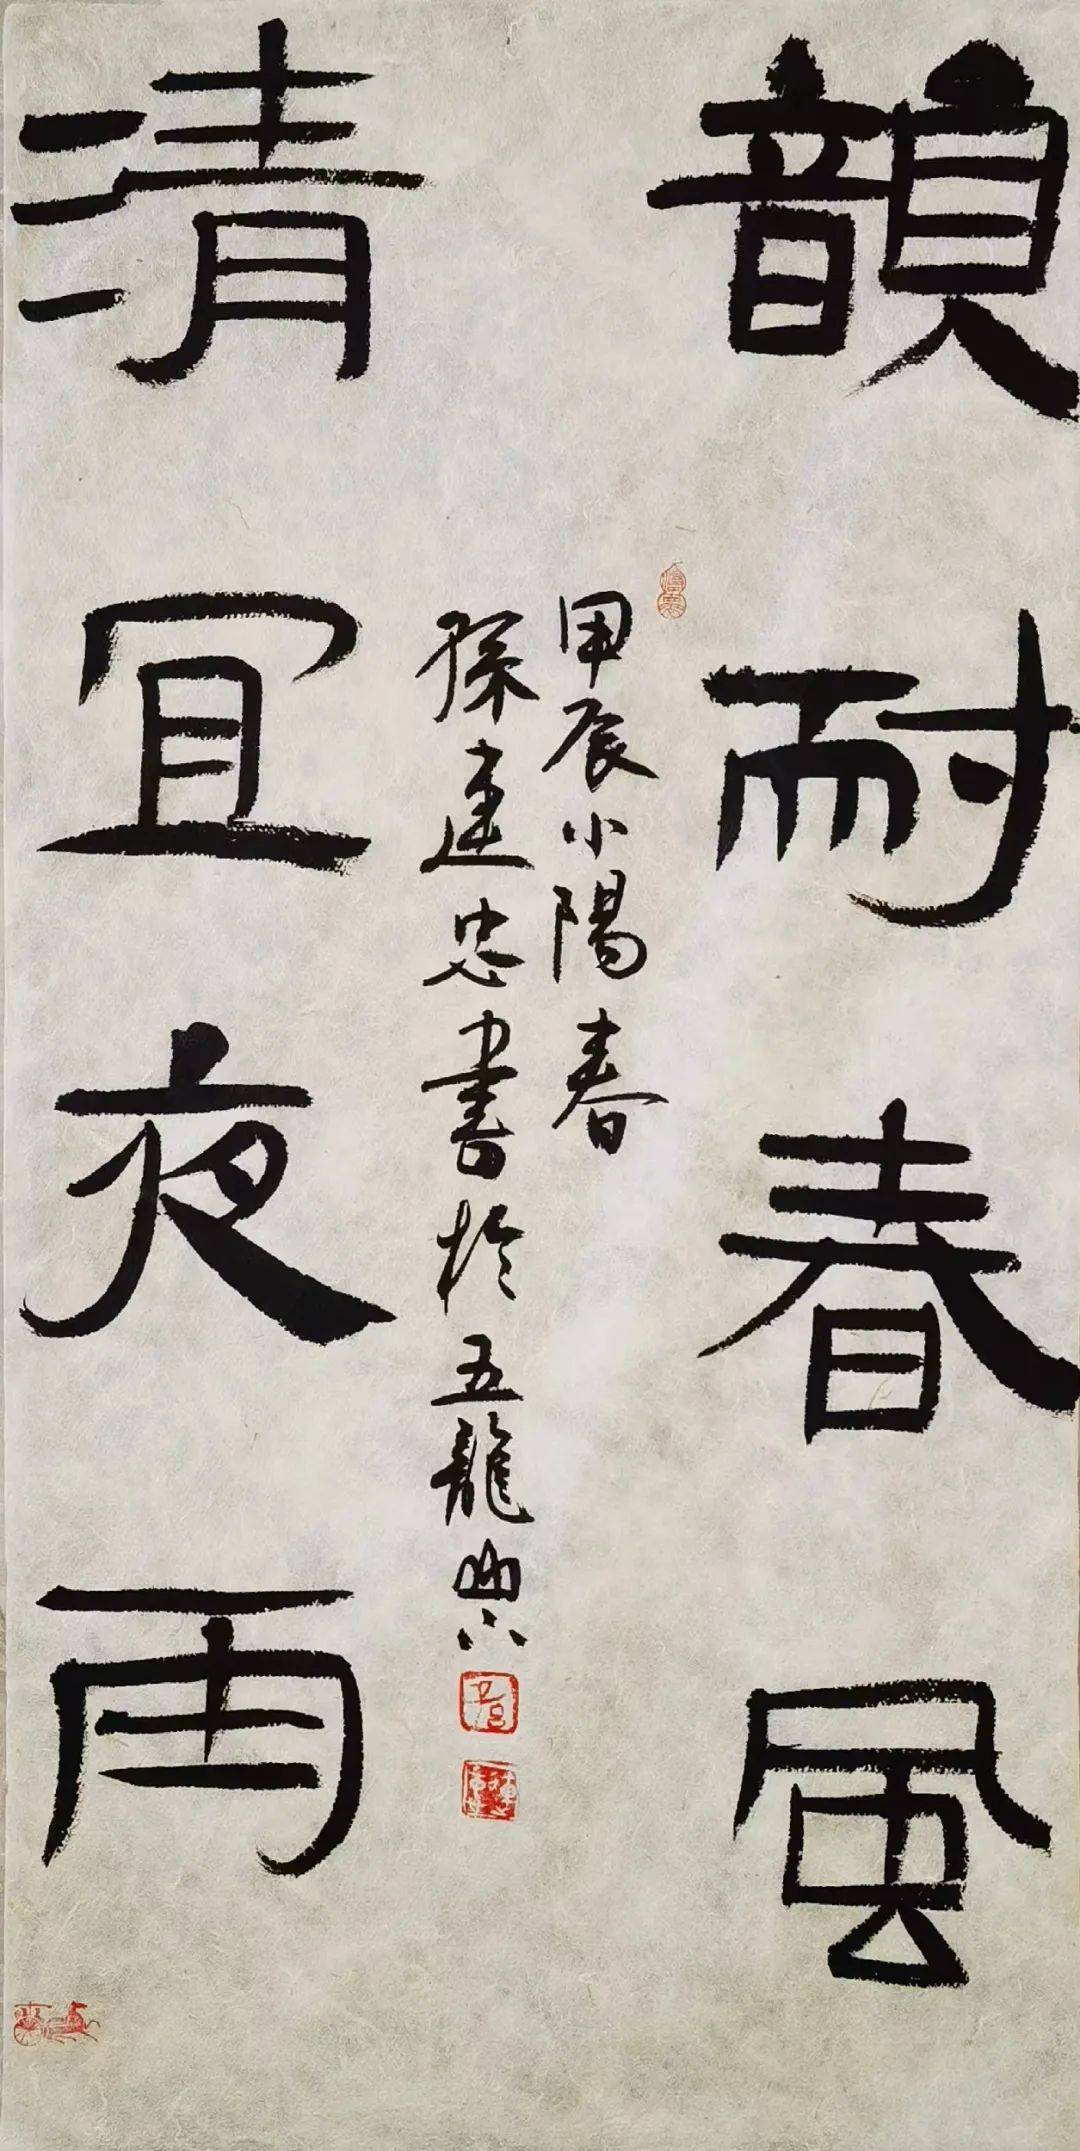 韻耐春風
清宜夜雨
甲辰小陽春
孫建忠書於五龍